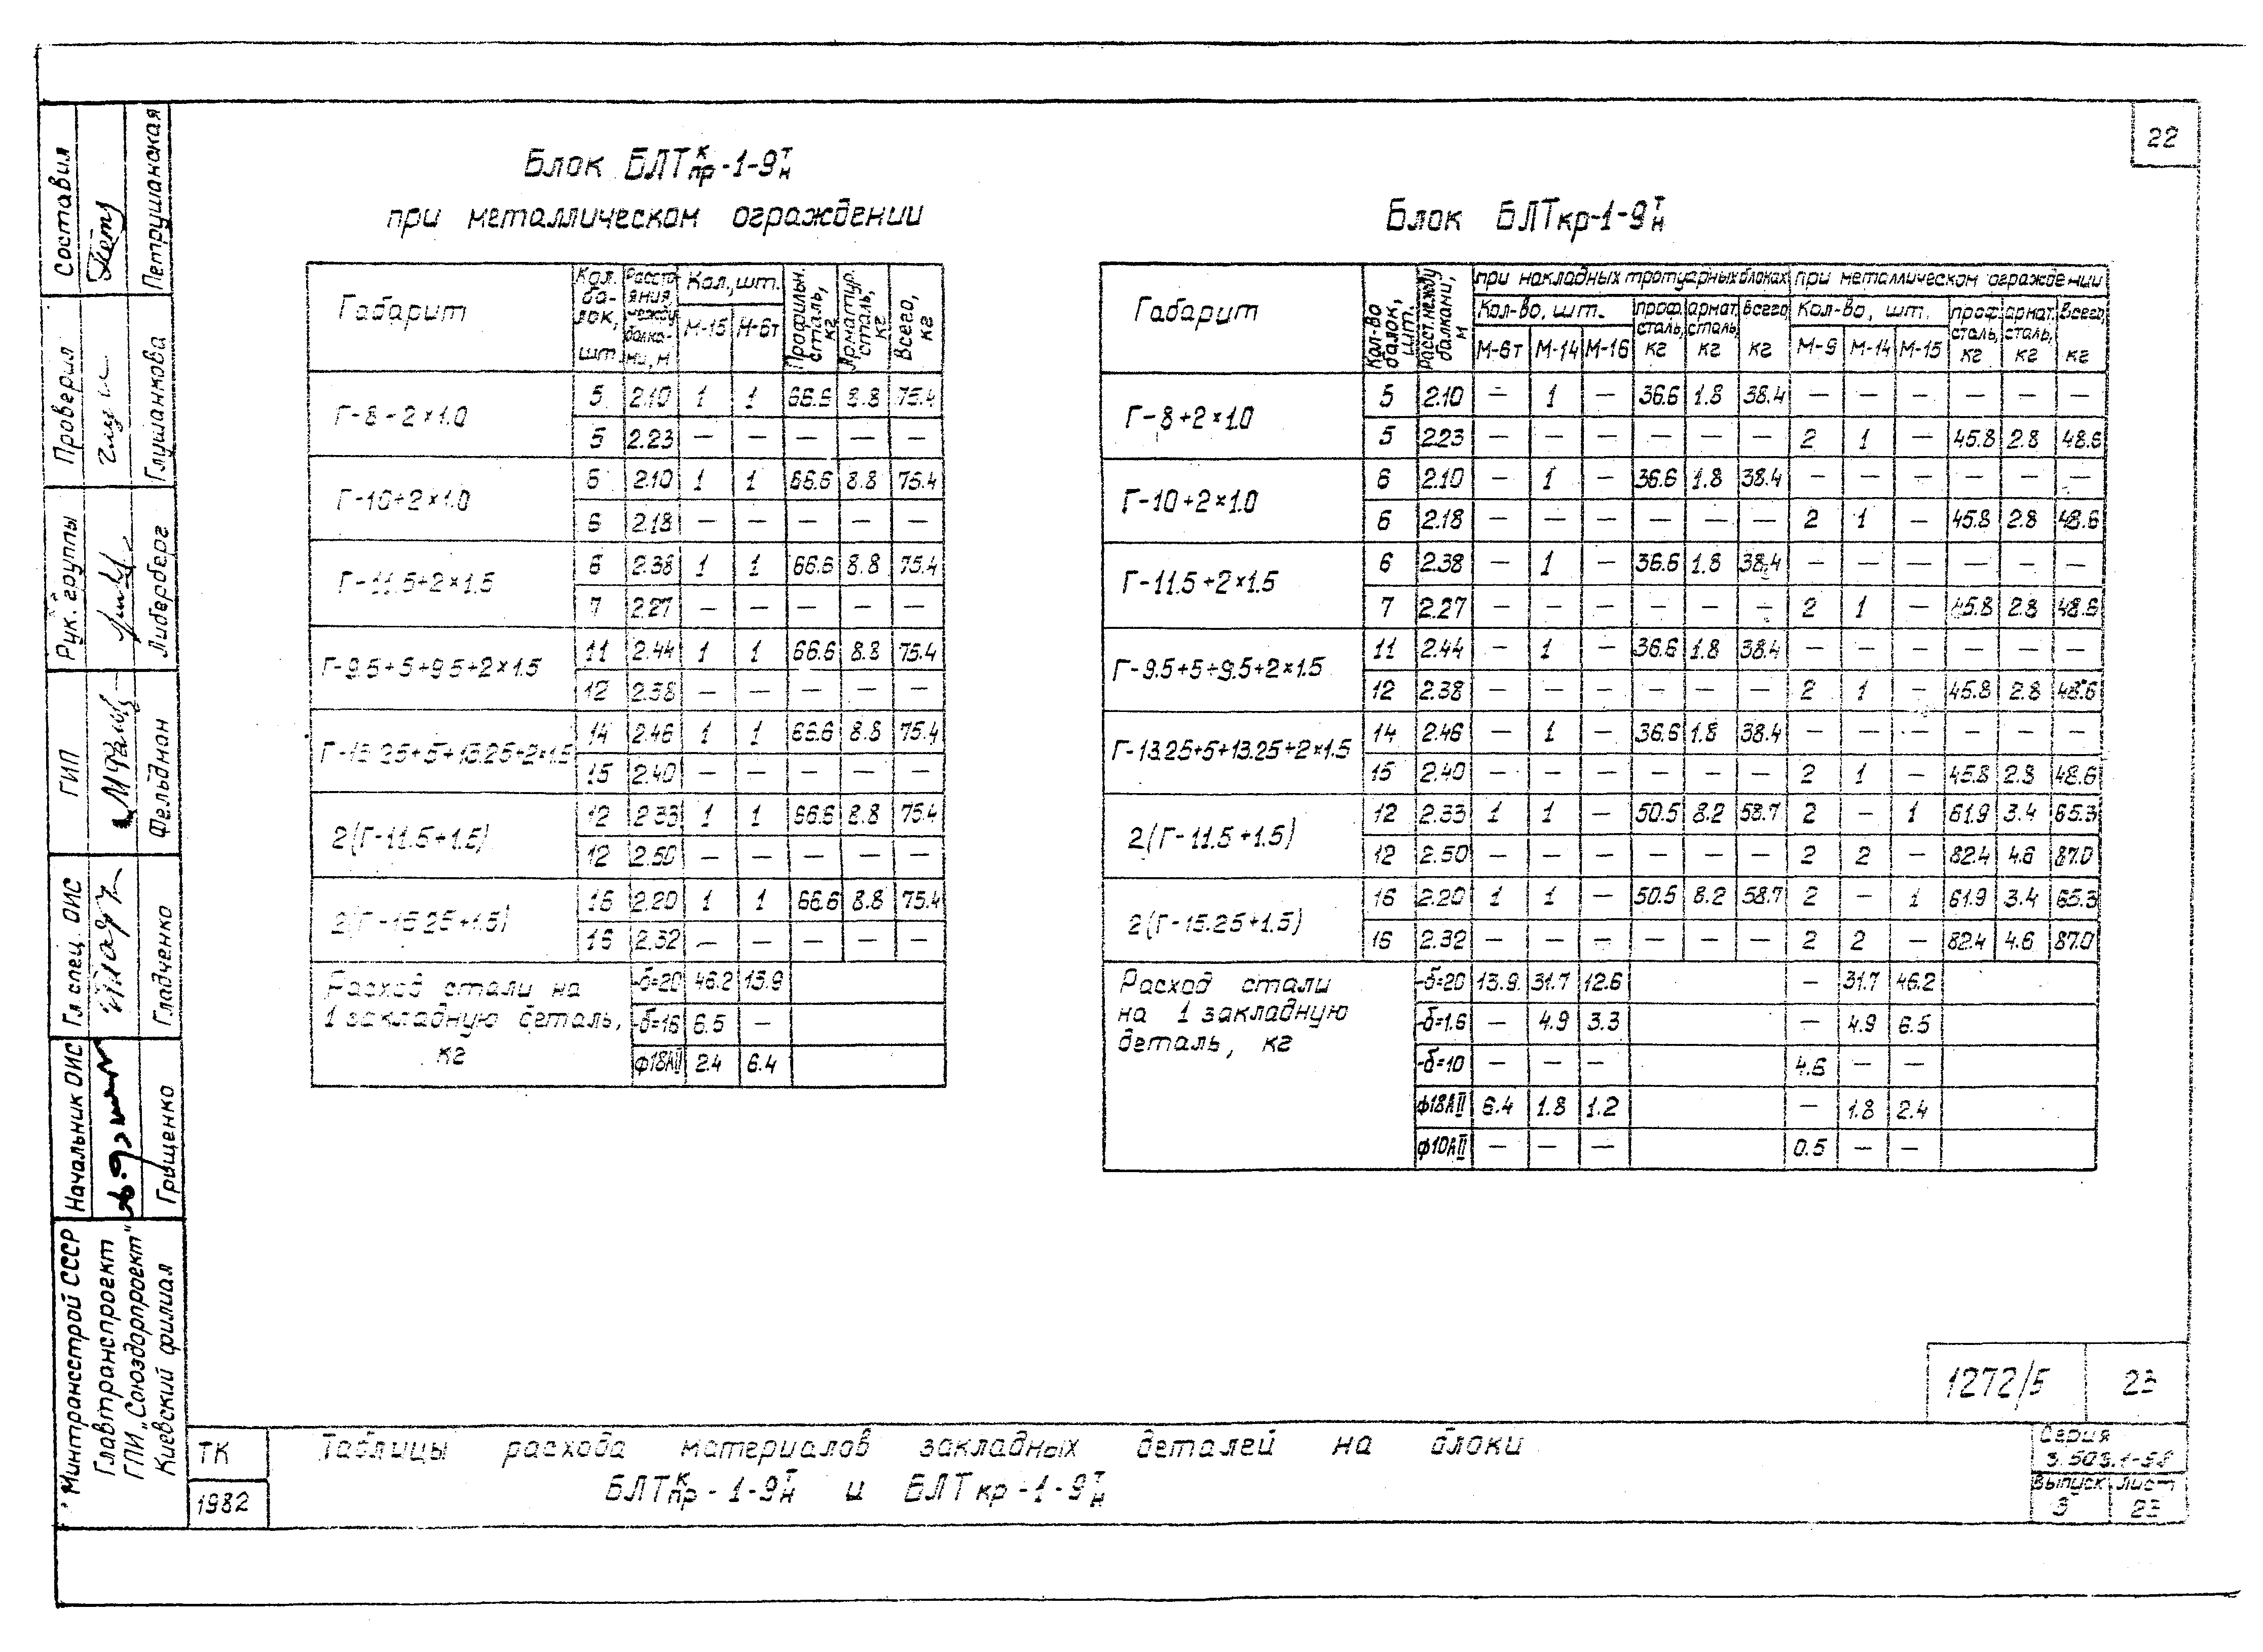 22
Блок БЛТ к/пр -1-9 т/н
при металлическом ограждении
Габарит | Кол. ба-лок, шт. | Расстояния между балка-ми, м | Кол., шт. | Профильн. сталь, кг | Арматур. сталь, кг | Всего, кг
М-15 | М-6т
Г-8+2×1.0 | 5 | 2.10 | 1 | 1 | 66.6 | 8.8 | 75.4
5 | 2.23 | — | — | — | — | —
Г-10+2×1.0 | 6 | 2.10 | 1 | 1 | 66.6 | 8.8 | 75.4
6 | 2.18 | — | — | — | — | —
Г-11.5+2×1.5 | 6 | 2.38 | 1 | 1 | 66.6 | 8.8 | 75.4
7 | 2.27 | — | — | — | — | —
Г-9.5+5+9.5+2×1.5 | 11 | 2.44 | 1 | 1 | 66.6 | 8.8 | 75.4
12 | 2.38 | — | — | — | — | —
Г-13.25+5+13.25+2×1.5 | 14 | 2.46 | 1 | 1 | 66.6 | 8.8 | 75.4
15 | 2.40 | — | — | — | — | —
2(Г-11.5+1.5) | 12 | 2.33 | 1 | 1 | 66.6 | 8.8 | 75.4
12 | 2.50 | — | — | — | — | —
2(Г-15.25+1.5) | 16 | 2.20 | 1 | 1 | 66.6 | 8.8 | 75.4
16 | 2.32 | — | — | — | — | —
Расход стали на | -δ=20 | 46.2 | 13.9
1 закладную деталь, | -δ=16 | 6.5 | —
кг | ф18АII | 2.4 | 6.4
Блок БЛТкр-1-9 т/н
Габарит | Кол-во балок, шт. | Расст. между балками, м | при накладных тротуарных блоках | при металлическом ограждении
Кол-во, шт. | проф. сталь, кг | армат. сталь, кг | Всего кг | Кол-во, шт. | проф. сталь, кг | армат. сталь, кг | Всего, кг
М-6т | М-14 | М-16 | М-9 | М-14 | М-15
Г-8+2×1.0 | 5 | 2.10 | — | 1 | — | 36.6 | 1.8 | 38.4 | — | — | — | — | — | —
5 | 2.23 | — | — | — | — | — | — | 2 | 1 | — | 45.8 | 2.8 | 48.6
Г-10+2×1.0 | 6 | 2.10 | — | 1 | — | 36.6 | 1.8 | 38.4 | — | — | — | — | — | —
6 | 2.18 | — | — | — | — | — | — | 2 | 1 | — | 45.8 | 2.8 | 48.6
Г-11.5+2×1.5 | 6 | 2.38 | — | 1 | — | 36.6 | 1.8 | 38.4 | — | — | — | — | — | —
7 | 2.27 | — | — | — | — | — | — | 2 | 1 | — | 45.8 | 2.8 | 48.6
Г-9.5+5+9.5+2×1.5 | 11 | 2.44 | — | 1 | — | 36.6 | 1.8 | 38.4 | — | — | — | — | — | —
12 | 2.38 | — | — | — | — | — | — | 2 | 1 | — | 45.8 | 2.8 | 48.6
Г-13.25+5+13.25+2×1.5 | 14 | 2.46 | — | 1 | — | 36.6 | 1.8 | 38.4 | — | — | — | — | — | —
15 | 2.40 | — | — | — | — | — | — | 2 | 1 | — | 45.8 | 2.8 | 48.6
2(Г-11.5+1.5) | 12 | 2.33 | 1 | 1 | — | 50.5 | 8.2 | 58.7 | 2 | — | 1 | 61.9 | 3.4 | 65.3
12 | 2.50 | — | — | — | — | — | — | 2 | 2 | — | 82.4 | 4.6 | 87.0
2(Г-15.25+1.5) | 16 | 2.20 | 1 | 1 | — | 50.5 | 8.2 | 58.7 | 2 | — | 1 | 61.9 | 3.4 | 65.3
16 | 2.32 | — | — | — | — | — | — | 2 | 2 | — | 82.4 | 4.6 | 87.0
Расход стали | -δ=20 | 13.9 | 31.7 | 12.6 | — | 31.7 | 46.2
на 1 закладную | -δ=1.6 | — | 4.9 | 3.3 | — | 4.9 | 6.5
деталь, кг | -δ=10 | — | — | — | 4.6 | — | —
ф18АII | 6.4 | 1.8 | 1.2 | — | 1.8 | 2.4
ф10АII | — | — | — | 0.5 | — | —
Составил Петрушанская
Проверил Глушанкова
Рук. группы Либерберг
ГИП Фельдман
Гл спец. ОИС Гладченко
Начальник ОИС Грищенко
Минтрансстрой СССР
Главтранспроект
ГПИ „Союздорпроект"
Киевский филиал
1272/5 23
ТК
1982
Таблицы расхода материалов закладных деталей на блоки
БЛТ к/пр -1-9 т/н и БЛТкр-1-9 т/н
Серия
3.503.1-58
Выпуск лист
9 23